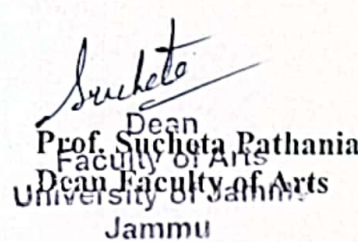 Sucheta
Dean
Prof. Sucheta Pathania
Faculty of Arts
Dean Faculty of Arts
University of Jammu
Jammu